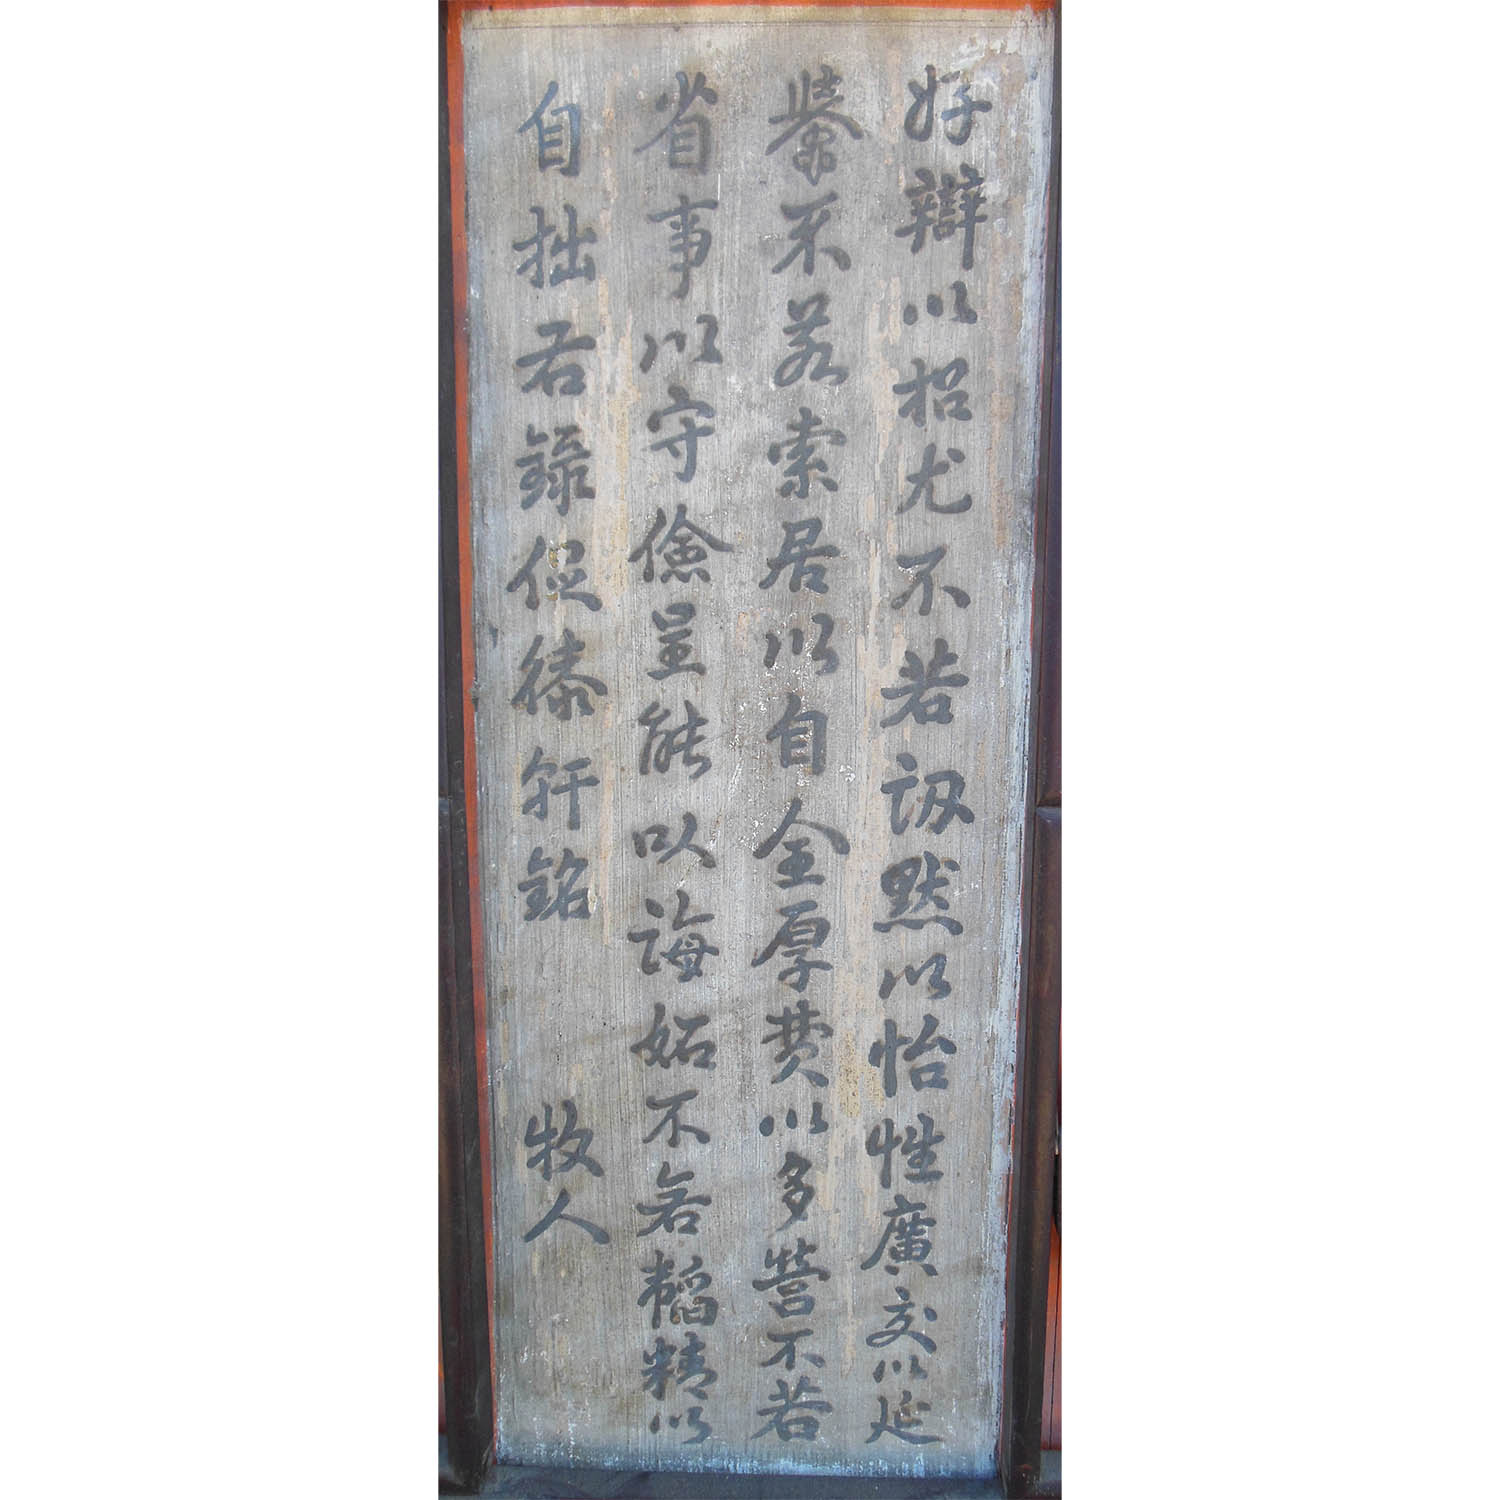 好辯以招尤不若訒默以怡性廣交以延
譽不若索居以自全厚費以多營不若
省事以守儉呈能以誨妬不若韜精以
自拙右錄倪㣖軒銘 牧人